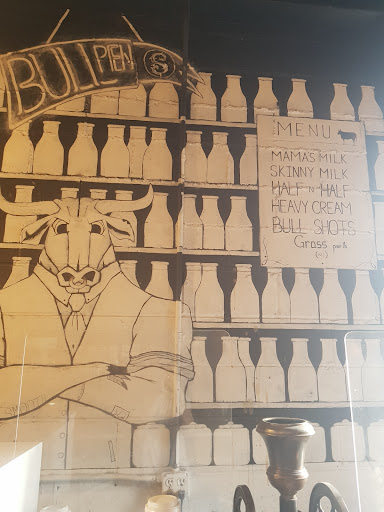 BULL PEN $
MENU
MAMA'S MILK
SKINNY MILK
HALF 'N' HALF
HEAVY CREAM
BULL SHOTS
Grass